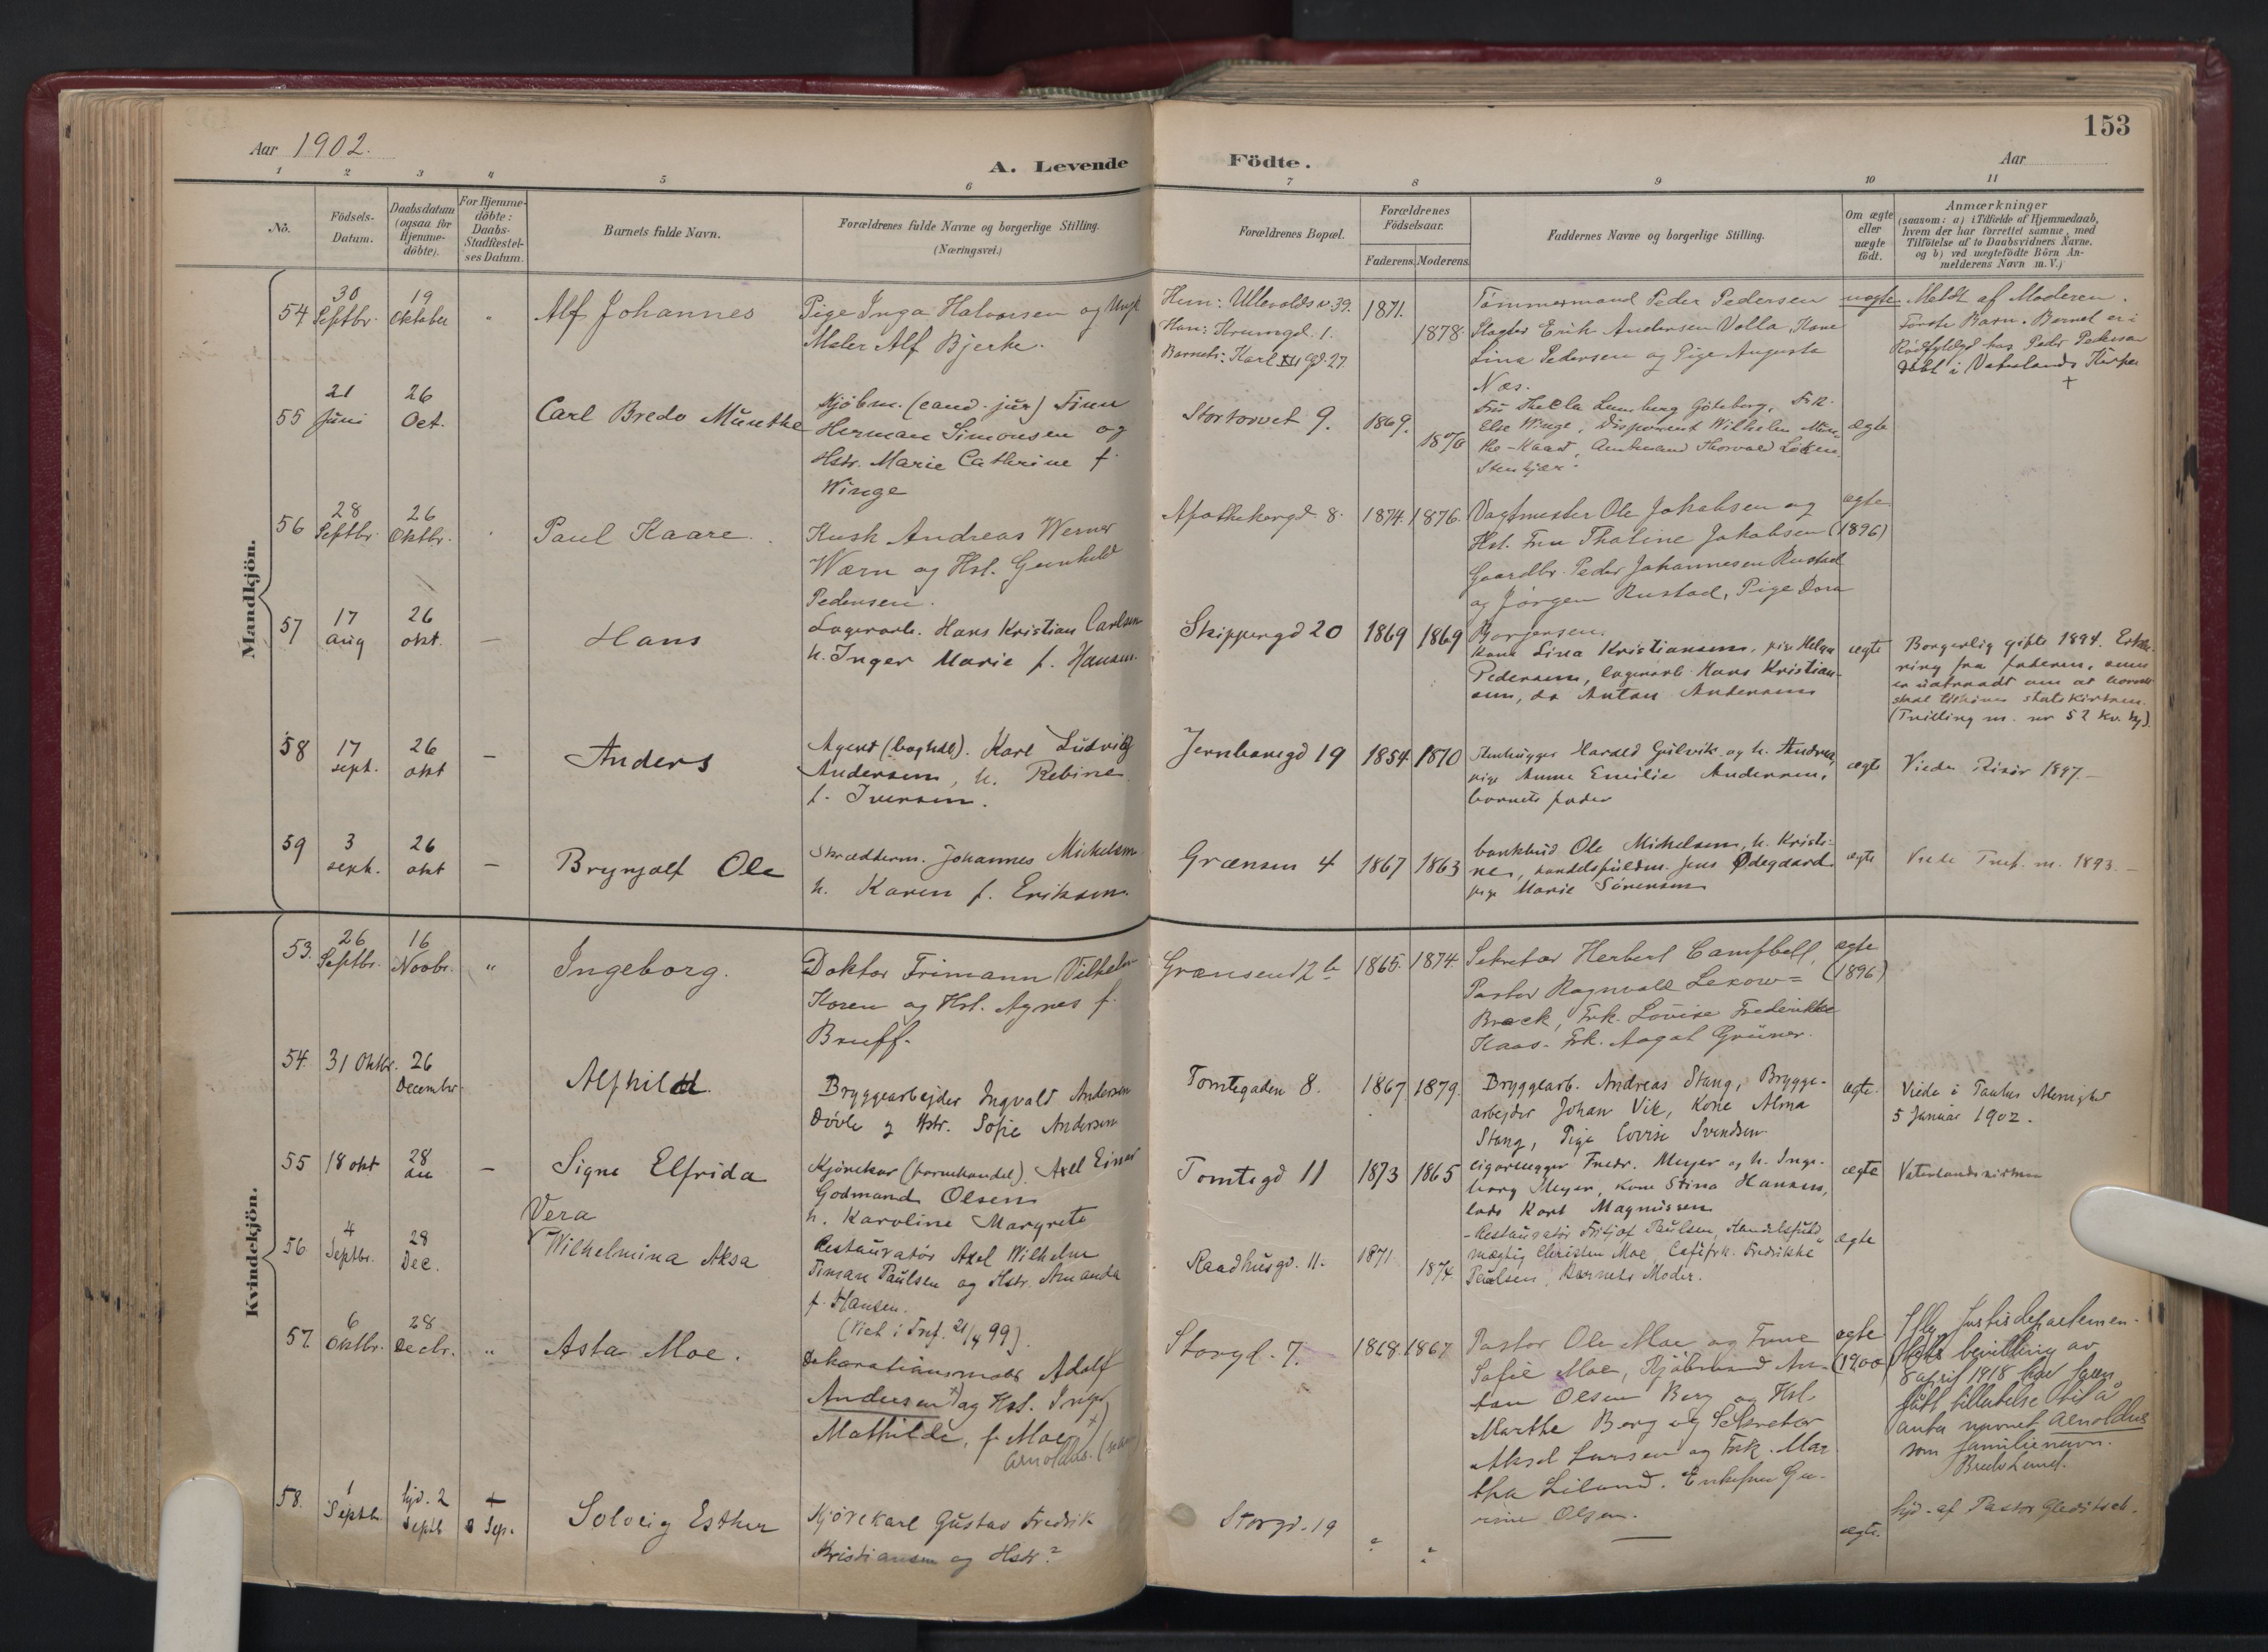 153
Aar 1902.
A. Levende Födte.
Aar
1 2 3 4 5 6 7 8 9 10 11
Nö.
Födsels-Datum.
Daabsdatum (ogsaa for Hjemme-döbte).
For Hjemme-döbte: Daabs-Stadfæstel-ses Datum.
Barnets fulde Navn.
Forældrenes fulde Navne og borgerlige Stilling.
(Næringsvei.)
Forældrenes Bopæl.
Forældrenes Födselsaar.
Faderens. Moderens.
Faddernes Navne og borgerlige Stilling.
Om ægte eller uægte født.
Anmærkninger
(saasom: a) i Tilfælde af Hjemmedaab,
hvem der har forrettet samme, med
Tilföielse af to Daabsvidners Navne.
og b) ved uægtefödte Börn An-
melderens Navn m. V.)
Mandkjön.
54 30 Septbr. 19 Oktober " Alf Johannes
Pige Inga Halvorsen og Ungk
Maler Alf Bjerke.
Hun: Ullevoldsv. 39.
Han: 1.
Barnets: Karl XII gd. 27.
1871. 1878.
Tømmermand Peder Pedersen
Slagter Erik Andersen Volla, Kone
Lina Pedersen og Pige Augusta
Næs.
uægte
Meldt af Moderen.
Første Barn. Barnet er i
hos Peder Pedersen
Døbt i Vaterlands Kirke
+
55 21 Juni 26 Oct. Carl Bredo Munthe
Kjøbm. (cand. jur) Finn
Herman Simonsen og
Hstr. Marie Cathrine f.
Winge
Stortorvet 9. 1869. 1870
Fru Thecla Lundberg Göteborg, Frk.
Else Winge, Disponent Wilhelm Mun-
the-Kaas, Amtmand Thorvald Løken
Stenkjær.
ægte
56 28 Septbr. 26 Oktbr. Paul Kaare.
Kusk Andreas Werner
Wærn og Hst. Gunhild
Pedersen.
Apothekergd. 8. 1874. 1876.
Vagtmester Ole Jakobsen og
Hst. Fru Thaline Jakobsen
Gaardbr. Peder Johannesen Rustad
og Jørgen Rustad, Pige Dora
Borgersen.
ægte (1896)
57 17 aug 26 okt. — Hans
Lagerarb. Hans Kristian Carlsen
h. Inger Marie f. Hansen.
Skippergd 20 1869 1869
Kone Lina Kristiansen, pige Helga
Pedersen, lagerarb. Hans Kristian-
sen, do Anton Andersen
ægte
Borgerlig gifte 1894. Erklæ-
ring fra faderen, som
er udtraadt om at barnet
skal tilhøre statskirken.
(Tvilling m. nr 52 kv. kj.)
58 17 sept. 26 okt — Anders
Agent (boghdl). Karl Ludvig
Andersen, h. Rebine
f. Iversen.
Jernbanegd 19 1854. 1870
Stenhugger Harald Gulvik og h. Andrea,
pige Anna Emilie Andersen,
barnets fader
ægte
Viede Risør 1897.—
59 3 sept. 26 okt — Brynjolf Ole
Skrædderm. Johannes Mickelsen
h. Karen f. Eriksen.
Grænsen 4 1867 1863
bankbud Ole Mickelsen, h. Kristi-
ne, handelsfuldm. Jens Ødegaard
pige Marie Sørensen
ægte
Viede Tref. m. 1893.—
Kvindekjön.
53. 26 Septbr. 16 Novbr. " Ingeborg.
Doktor Frimann Vilhelm
Koren og Hst. Agnes f.
Bruff.
Grænsen 12 b 1865. 1874.
Sekretær Herbert Campbell,
Pastor Ragnvald Lexow=
Bræck, Frk. Lovise Frederikke
Kaas. Frk. Aagot Grüner.
ægte (1896)
54. 31 Oktbr. 26 December Alfhild.
Bryggearbejder Ingvald Andersen
Døvle og Hstr. Sofie Andersen
Tomtegaden 8. 1867 1879.
Bryggearb. Andreas Stang, Brygge-
arbejder Johan Vik, Kone Alma
Stang, Pige Lovise Svendsen
ægte.
Viede i Paulus Menighed
5 Januar 1902.
55 18 okt 28 — Signe Elfrida
Kjørekar (fornehandel). Axel Einar
Godmand Olsen
h. Karoline Margrete
Tomtegd 11 1873 1865
cigarlægger Fredr. Meyer og h. Inge-
borg Meyer, kone Stina Hansen,
lods Kort Magnussen
ægte
Vaterlandskirken
56. 4 Septbr. 28 Dec. Vera Wilhelmina Aksa
Restauratør Axel Wilhelm
Timan Paulsen og Hstr. Amanda
f. Hansen.
(Viet i Tref. 21/4 99).
Raadhusgd. 11. 1871 1874.
Restauratør Fritjof Paulsen, Handelsfuld-
mægtig Christen Moe, Caféfrk. Fredrikke
Paulsen, Barnets Moder.
ægte
57. 6 Oktbr. 28 Decbr. " Asta Moe.
Dekorationsmaler Adolf
Andersen +) og Hst. Inga
Mathilde, f. Moe.
+) Arnoldus.
Storgd. 7. 1868 1867
Pastor Ole Moe og Frue
Sofie Moe, Kjøbmand An-
ton Olsen Berg og Hst.
Marthe Berg og Sekretær
Aksel Larsen og Frk. Mar-
tha Lilund. Enkefru Gu-
rine Olsen.
ægte (1900)
Iflg. Justisdepartemen-
tets bevilling av
8 april 1918 har faren
fått tillatelse til å
anta navnet Arnoldus
som familienavn.
58. 1 Septb. hjd. 2 Septb + Sep. Solveig Esther
Kjørekarl Gustav Fredrik
Kristiansen og Hstr ?
Storgd. 19 ? ?
—
ægte.
hjd. af Pastor Gleditsch.